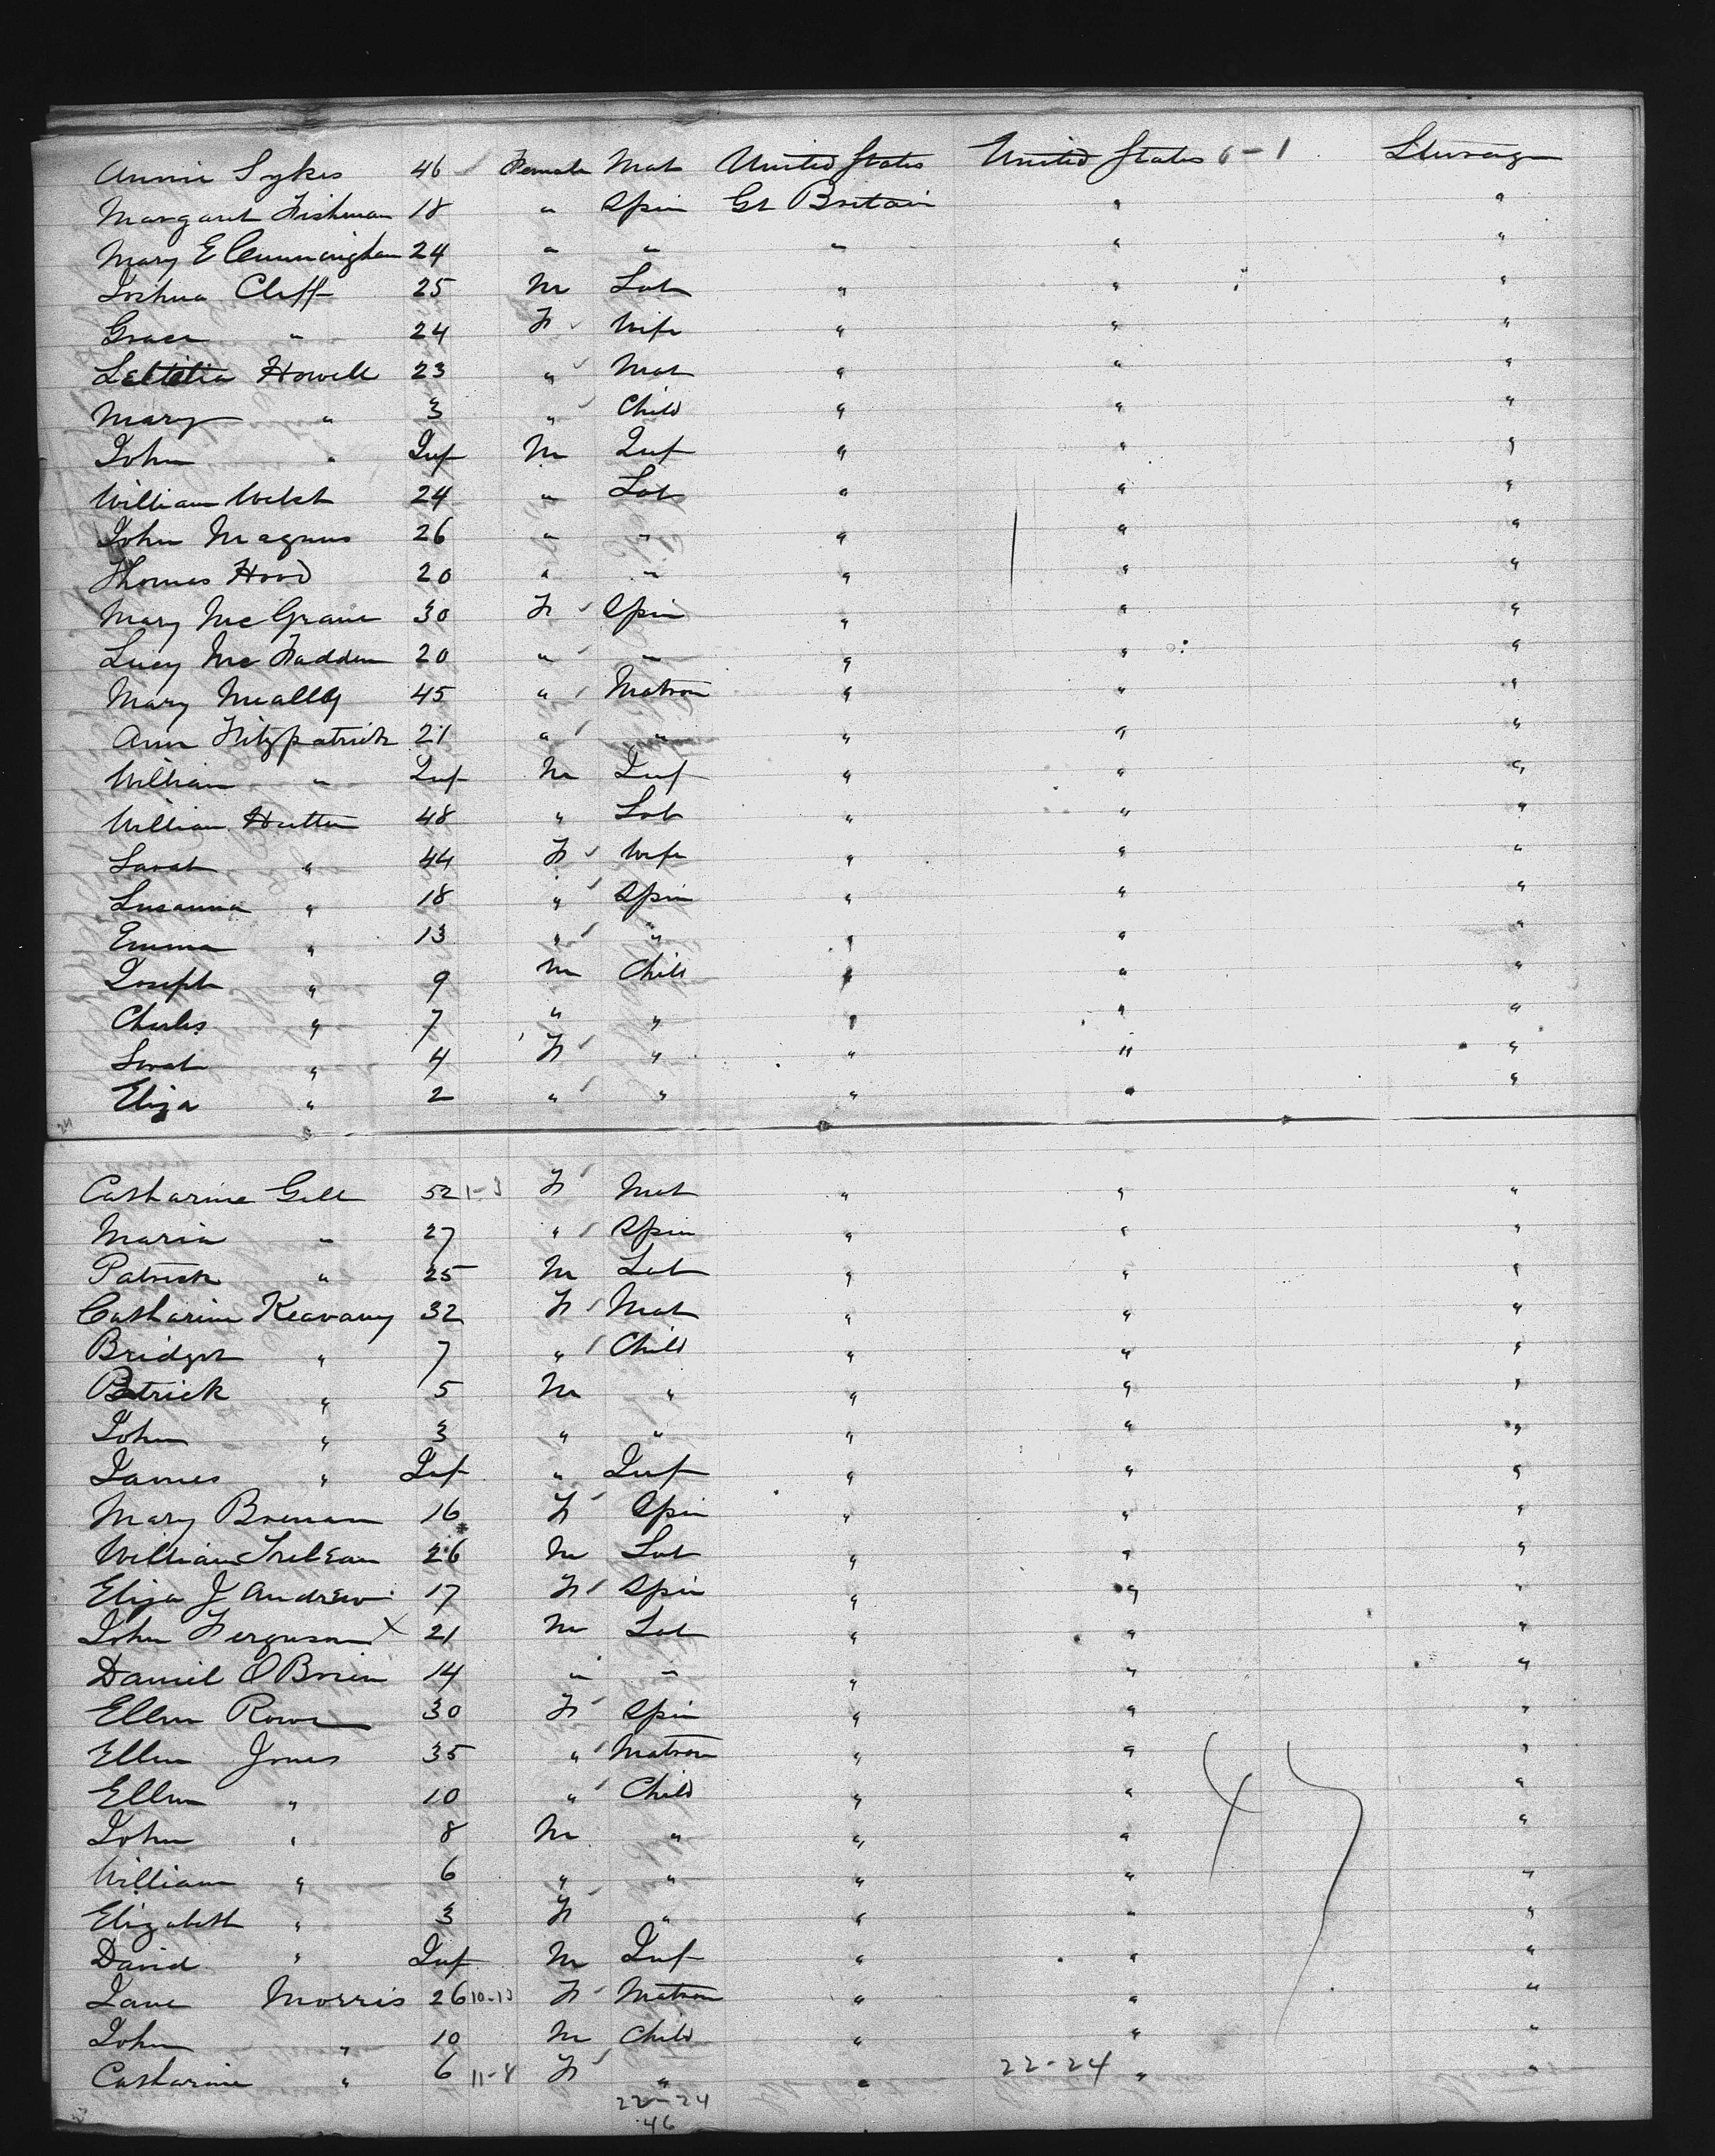 Annie Sykes 46 Female Mat United States United States 6-1 Steerage
Margaret Fishman 18 " Spin Gt Britain " "
Mary E Cunningham 24 " " " " "
Joshua Cliff 25 M Lab " " "
Grace " 24 F Wife " " "
Letitia Howell 23 " Mat " " "
Mary " 3 " Child " " "
John " Inf M Inf " " "
William Welsh 24 " Lab " " "
John Magnus 26 " " " " "
Thomas Hood 20 " " " " "
Mary McGrane 30 F Spin " " "
Lucy McFadden 20 " " " " "
Mary Meally 45 " Matron " " "
Ann Fitzpatrick 21 " " " " "
William " Inf M Inf " " "
William Hutton 48 " Lab " " "
Sarah " 44 F Wife " " "
Susanna " 18 " Spin " " "
Emma " 13 " " " " "
Joseph " 9 M Child " " "
Charles " 7 " " " " "
Sarah " 4 F " " " "
Eliza " 2 " " " " "
24
Catharine Gill 52 1-3 F Mat " " "
Maria " 27 " Spin " " "
Patrick " 25 M Lab " " "
Catharine Keavany 32 F Mat " " "
Bridget " 7 " Child " " "
Patrick " 5 M " " " "
John " 3 " " " " "
James " Inf " Inf " " "
Mary Brenan 16 F Spin " " "
William Trelean 26 M Lab " " "
Eliza J Andrew 17 F Spin " " "
John Ferguson X 21 M Lab " " "
Daniel O Brien 14 " " " " "
Ellen Rowe 30 F Spin " " "
Ellen Jones 35 " Matron " " "
Ellen " 10 " Child " " "
John " 8 M " " " "
William " 6 " " " " "
Elizabeth " 3 F " " " "
David " Inf M Inf " " "
47
Jane Morris 26 10-13 F Matron " " "
John " 10 M Child " " "
Catharine " 6 11-8 F " " 22-24 " "
22-24
46